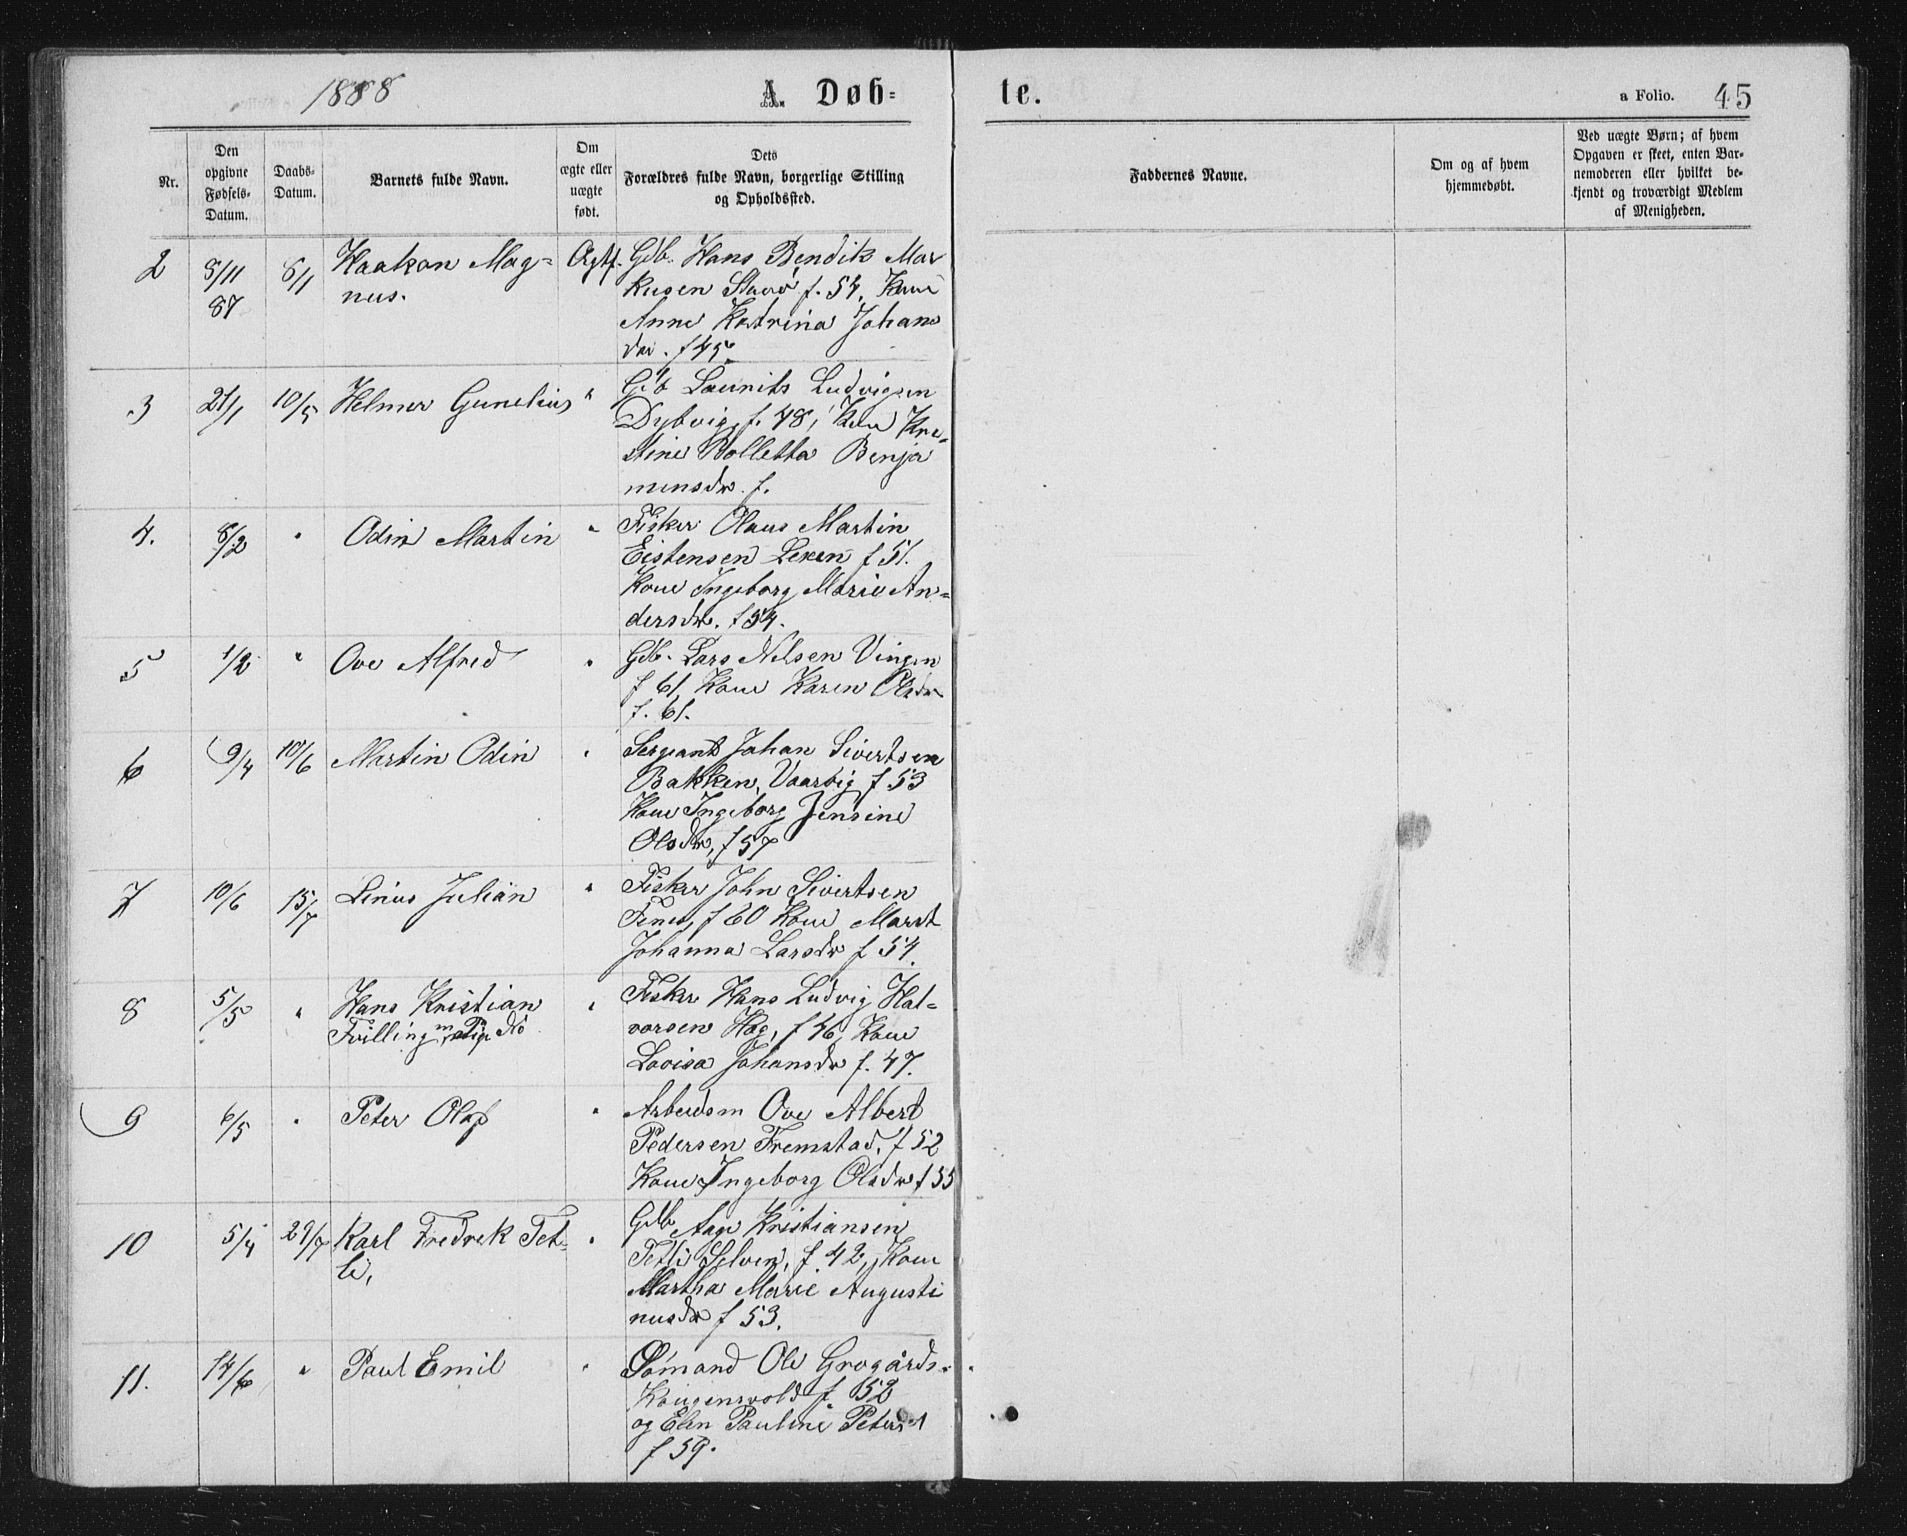 1888
A. Døb=
te.
a Folio. 45
Nr.
Den opgivne Fødsels-Datum.
Daabs-Datum.
Barnets fulde Navn.
Om ægte eller uægte født.
Dets Forældres fulde Navn, borgerlige Stilling og Opholdssted.
Faddernes Navne.
Om og af hvem hjemmedøbt.
Ved uægte Børn; af hvem Opgaven er skeet, enten Barnemoderen eller hvilket bekjendt og troværdigt Medlem af Menigheden.
2 8/11 87 6/1 Haakon Mag=
nus.
Ægtf.
Gdb. Hans Bendik Mar
kusen Stavø f. 54, Kone
Anne Katrina Johans
dar. f 45.
3 21/1 10/5 Helmer Gunelius "
Gdb Laurits Ludvigsen
Dybvig, f. 48, Kone Kri=
stine Bolletta Benja
minsdr. f.
4. 8/2 " Odin Martin "
Fisker Olaus Martin
Eistensen Leken f 51.
Kone Ingeborg Marie An=
dersdr. f 54.
5 1/2 " Ove Alfred "
Gdb. Lars Nilsen Vingen
f 61, Kone Karen Olsdr
f. 61.
6 9/4 10/6 Martin Odin "
Sergeant Johan Sivertsen
Bakken, Vaarvig f 53
Kone Ingeborg Jensine
Olsdr, f 57
7 10/6 15/7 Linus Julian "
Fisker John Sivertsen
Fines, f 60 Kone Marit
Johanna Larsdr f 54.
8 5/5 " Hans Kristian
Tvilling m
"
Fisker Hans Ludvig Hal=
vorsen Hag, f 46, Kone
Lovisa Johansdr f. 47.
9 6/5 " Peter Olaf "
Arbeidsm Ove Albert
Pedersen Fremstad, f 52
Kone Ingeborg Olsdr f 55
10 5/4 29/7 Karl Fredrek Tet=
li,
"
Gdb Aage Kristiansen
Tetli Selven, f. 42, Kone
Martha Marie Augusti
nusdr f 53.
11. 14/6 " Paul Emil "
Sømand Ole Grogårds
Kongensvold f. 52
og Elen Pauline Petersd
f 59.